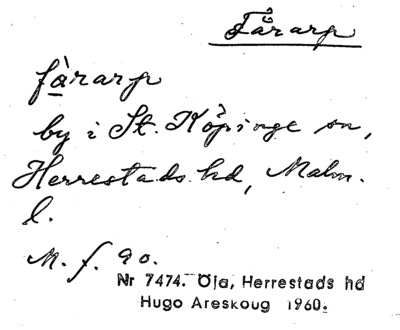 Fårarp
fàrarp
by i St. Köpinge sn,
Herrestads hd, Malm.
l.
M. f. 90.
Nr 7474. Öja, Herrestads hd
Hugo Areskoug 1960.